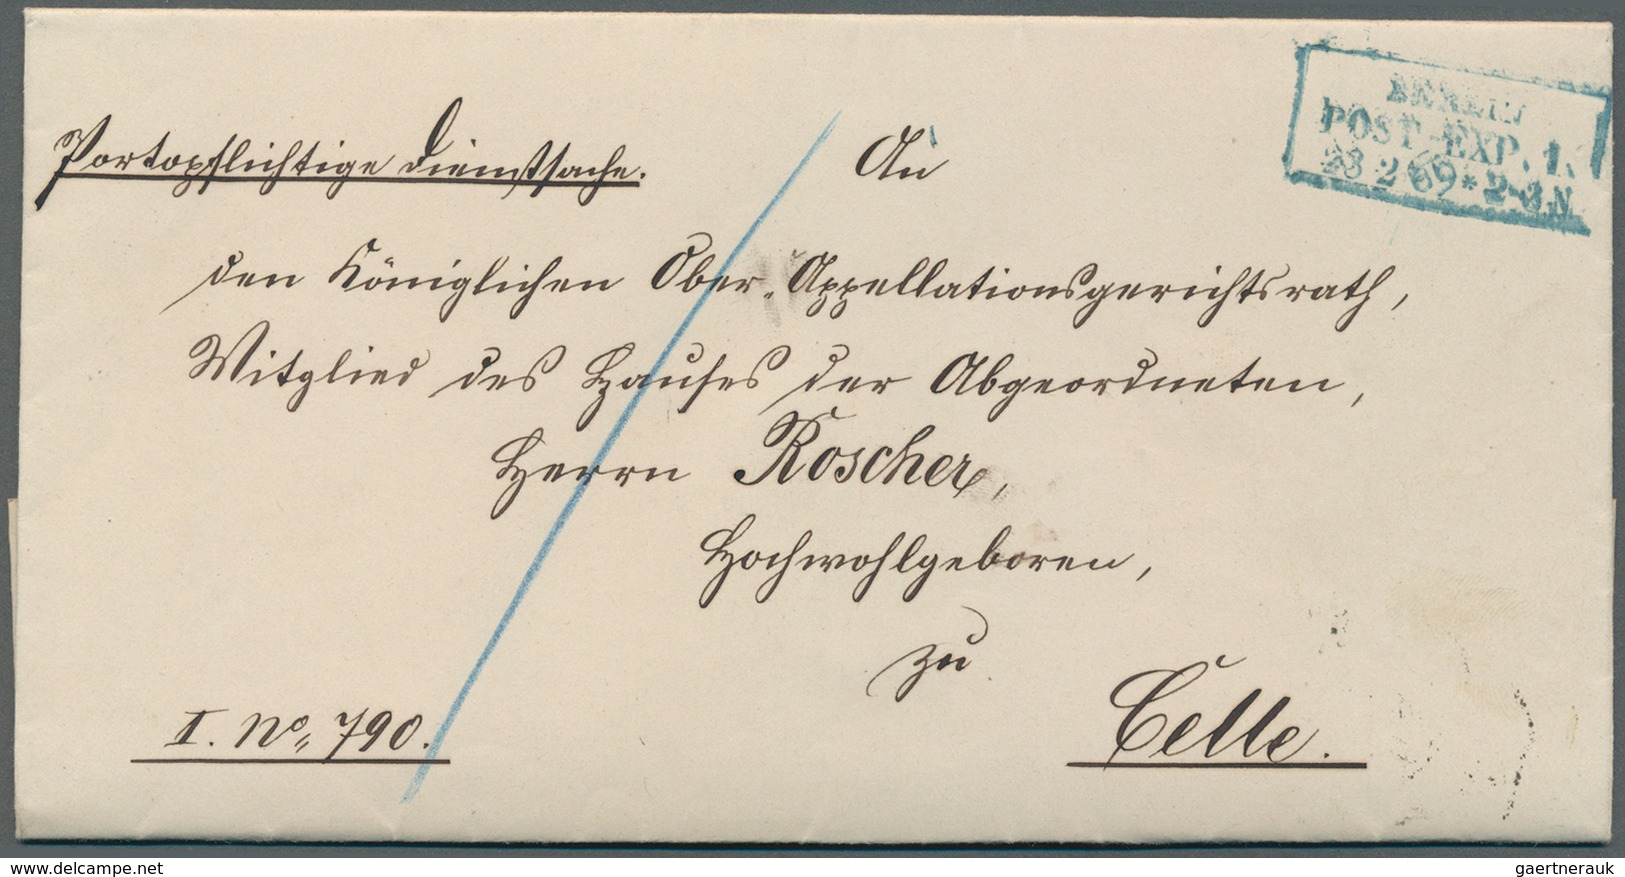 BERLIN
POST-EXP. 1.
23 2 69 * 2-3 N
Portopflichtige Dienstsache.
An
den Königlichen Ober-Appellationsgerichtsrath,
Mitglied des Hauses der Abgeordneten,
Herrn Roscher,
Hochwohlgeboren,
zu
Celle.
I. No. 790.
www.delcampe.net
gaertnerauk